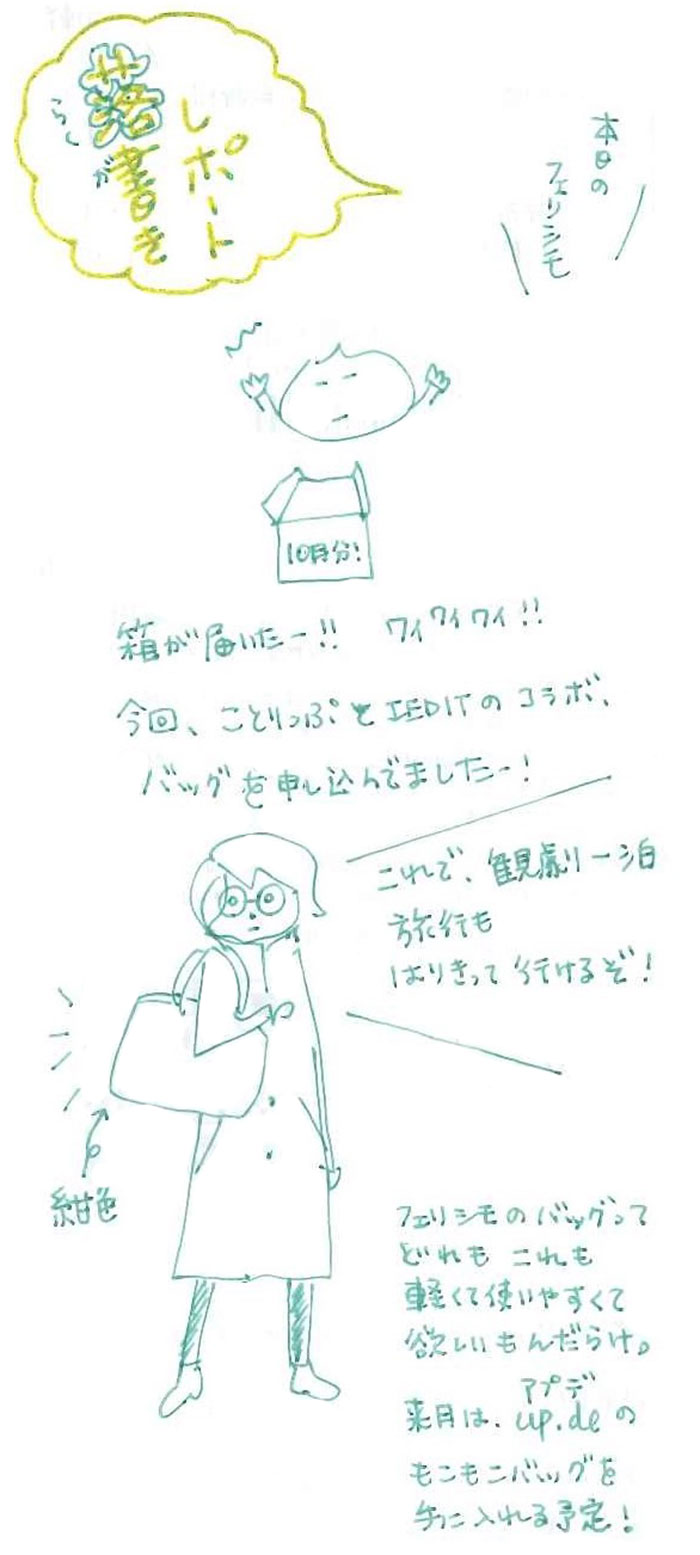 本日の
フェリシモ
レポート
落書き
らくが
10月分!
箱が届いたー!! ワイワイワイ!!
今回、ことりっぷとIEDITのコラボ、
バッグを申し込んでましたー!
これで、観劇一泊
旅行も
はりきって行けるぞ!
紺色
フェリシモのバッグって
どれもこれも
軽くて使いやすくて
欲しいもんだらけ。
アプデ
来月は、up.deの
もこもこバッグを
手に入れる予定!